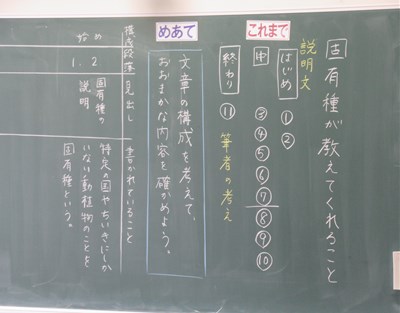 固有種が教えてくれること
説明文
これまで
はじめ ① ②
中 ③ ④ ⑤ ⑥ ⑦ ⑧ ⑨ ⑩
終わり ⑪ 筆者の考え
めあて
文章の構成を考えて、
おおまかな内容を確かめよう。
構成 段落 見出し 書かれていること
始め
1.2
固有種の
説明
特定の国やちいきにしか
いない動植物のことを
固有種という。